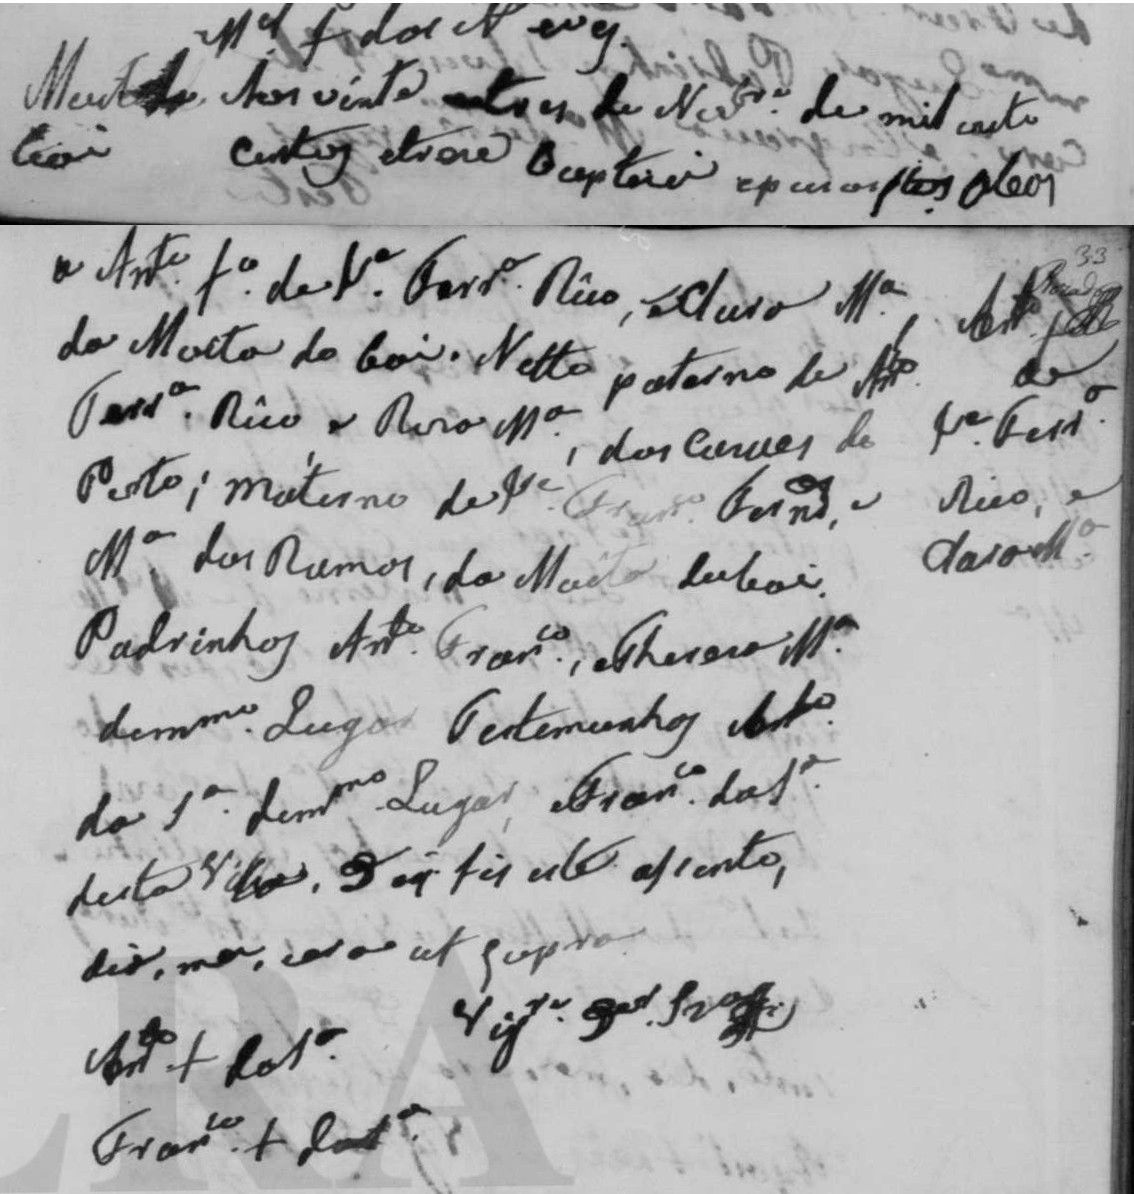 M.el + das Neves.
Mouta do Aos vinte e tres de Novbro. de mil e oito
boi centos e trese Baptisei e pus os Stos oleos
a Ant.o f.o de V.e Ferr.a Rico, e Clara M.a
da Moita do boi. Netto paterno de Ant.o
Ferr.a Rico e Rosa M.a, dos Cauaes de
Porto; materno de V.e Fran.co Fernd.es, e
M.a dos Ramos, da Moita do boi.
Padrinhos Ant.o Fran.co, e Theresa M.a
do m.mo Lugar Testemunhas Ant.o
da S.a do m.mo Lugar, e Fran.co da S.a
desta Villa. De q̃ fis este assento,
dia, mes, era ut supra
Vig.ro
Ant.o + da S.a
Fran.co + da S.a
33
Ant.o f.
de
V.e Ferr.a
Rico, e
Clara M.a
LRA